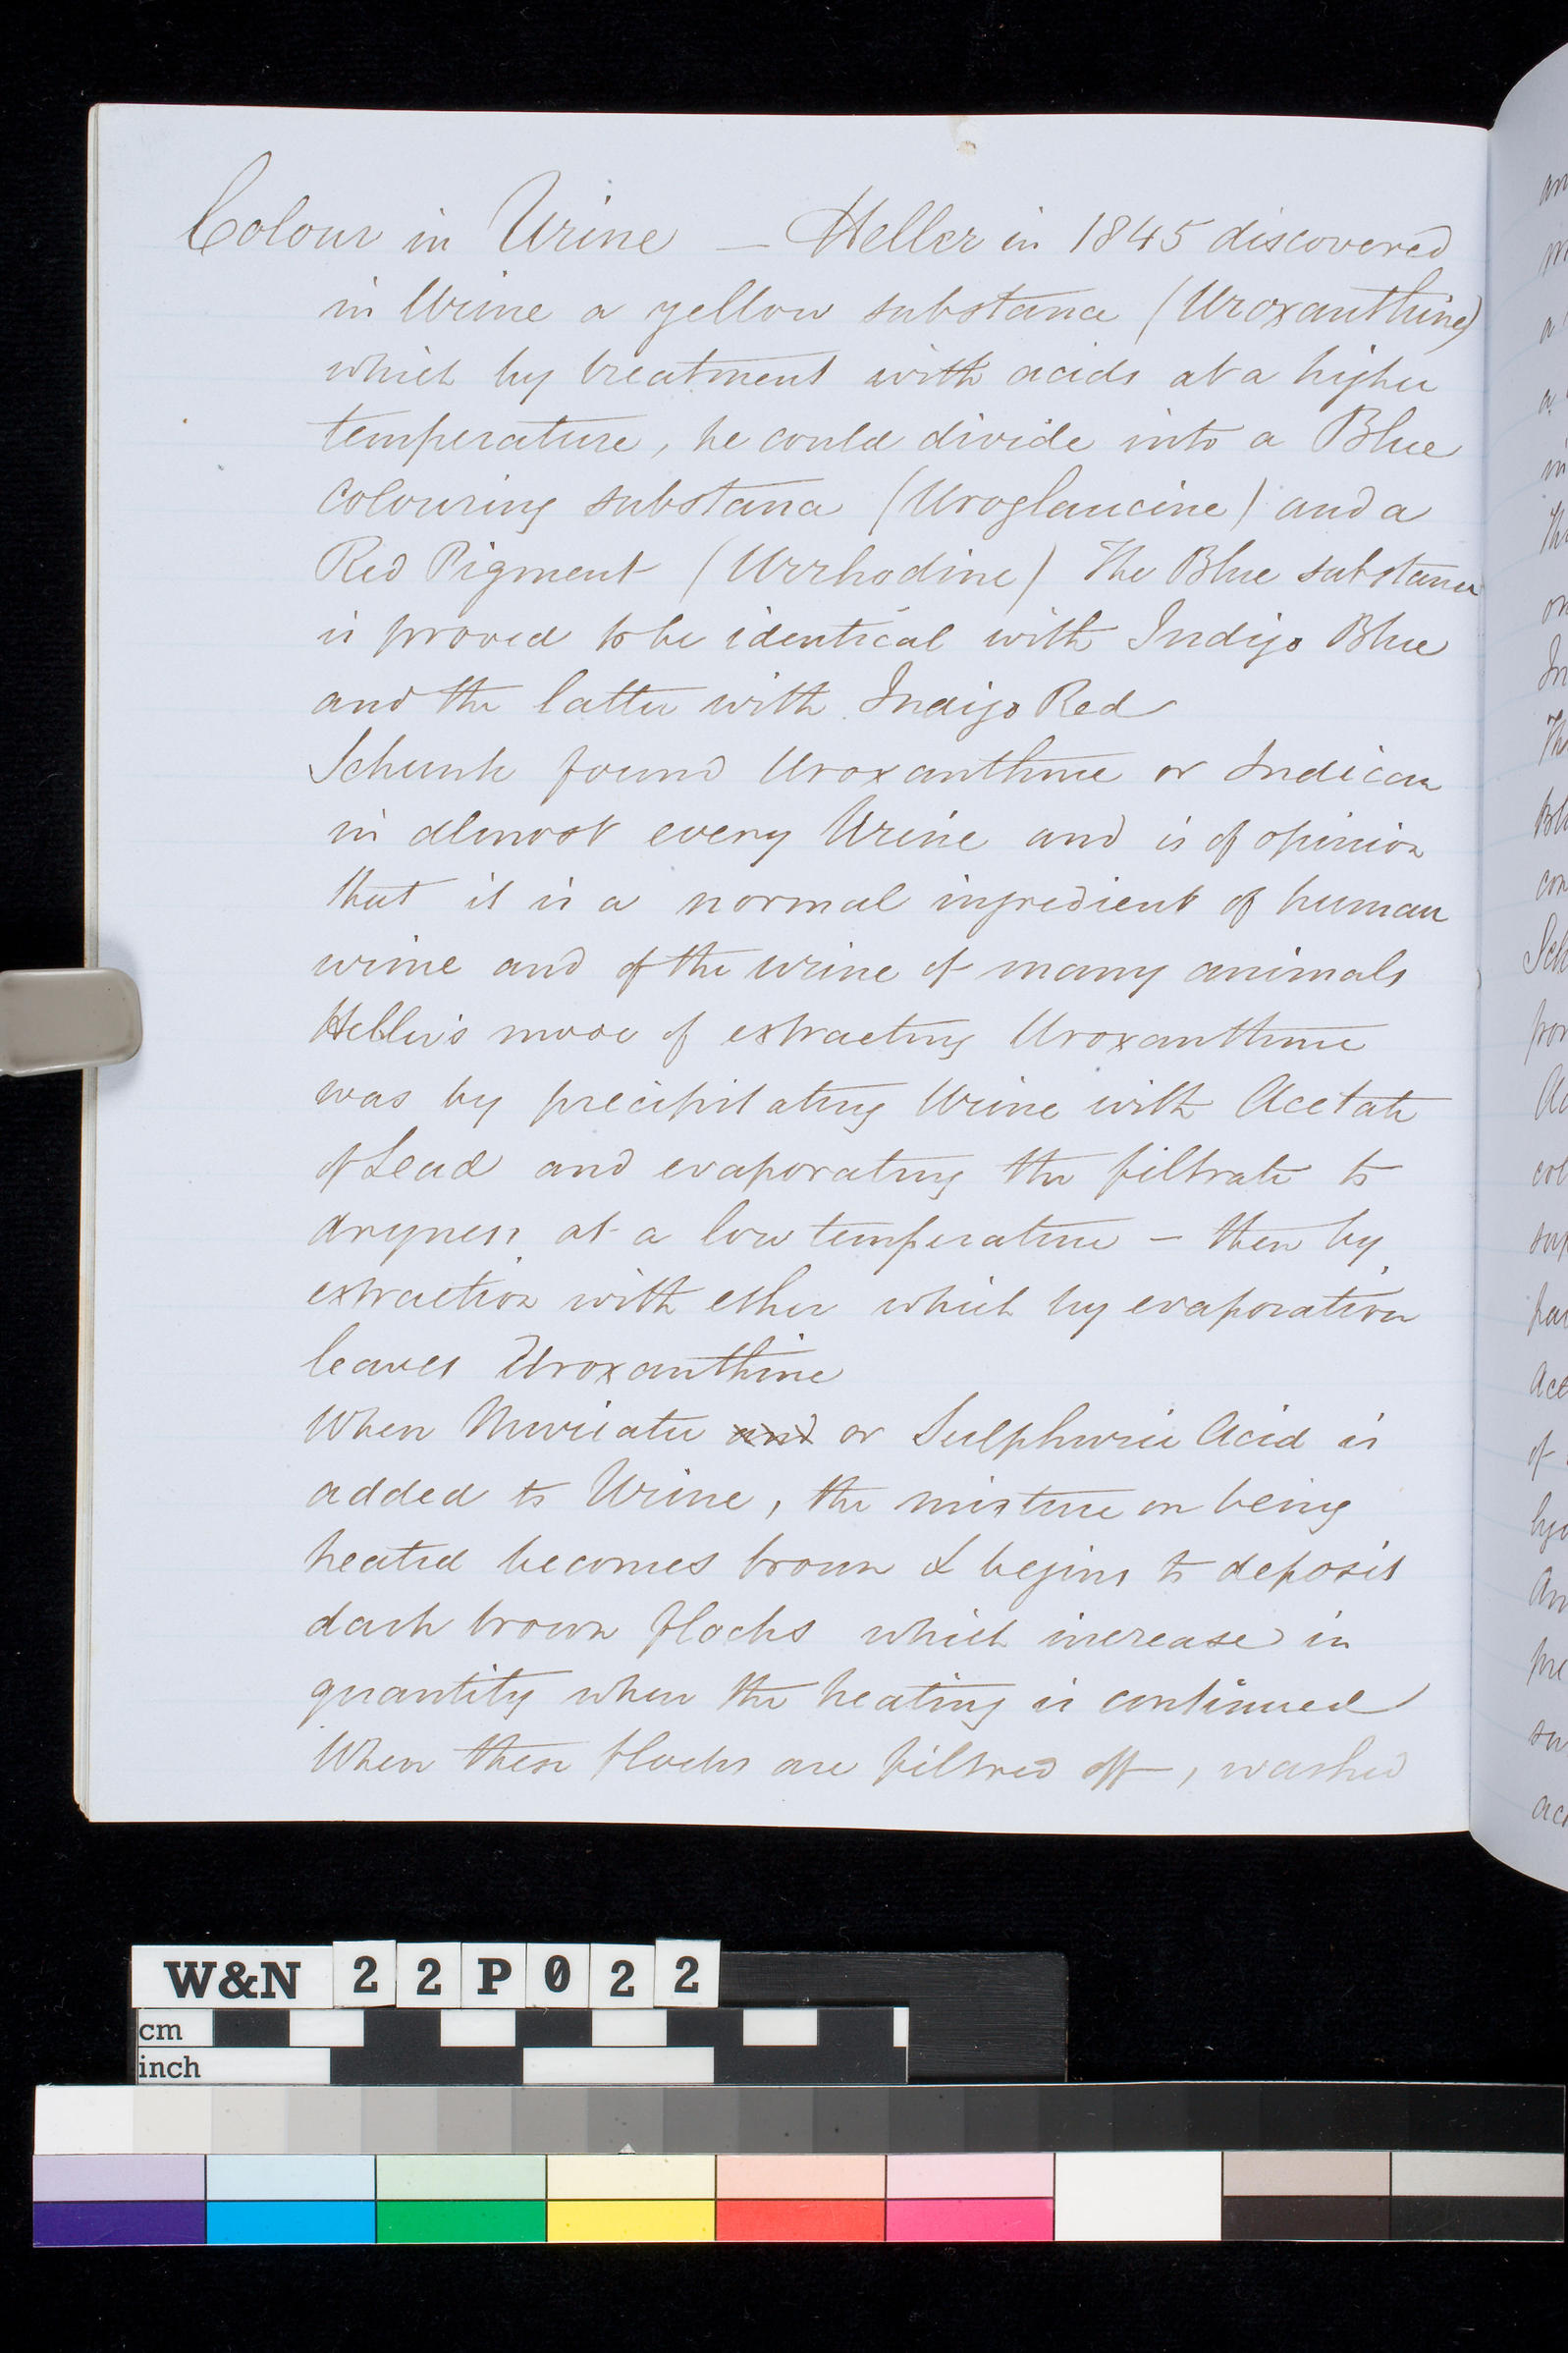 Colour in Urine — Heller in 1845 discovered
in Urine a yellow substance (Uroxanthine)
which by treatment with acids at a higher
temperature, he could divide into a Blue
colouring substance (Uroglaucine) and a
Red Pigment (Urrhodine) The Blue substance
is proved to be identical with Indigo Blue
and the latter with Indigo Red
Schunk found Uroxanthine or Indican
in almost every Urine and is of opinion
that it is a normal ingredient of human
urine and of the urine of many animals
Heller's mode of extracting Uroxanthine
was by precipitating Urine with Acetate
of Lead and evaporating the filtrate to
dryness at a low temperature – then by
extraction with ether which by evaporation
leaves Uroxanthine
When Muriatic and or Sulphuric Acid is
added to Urine, the mixture on being
heated becomes brown & begins to deposit
dark brown flocks which increase in
quantity when the heating is continued
When these flocks are filtred off, washed
W&N 22P022
cm
inch